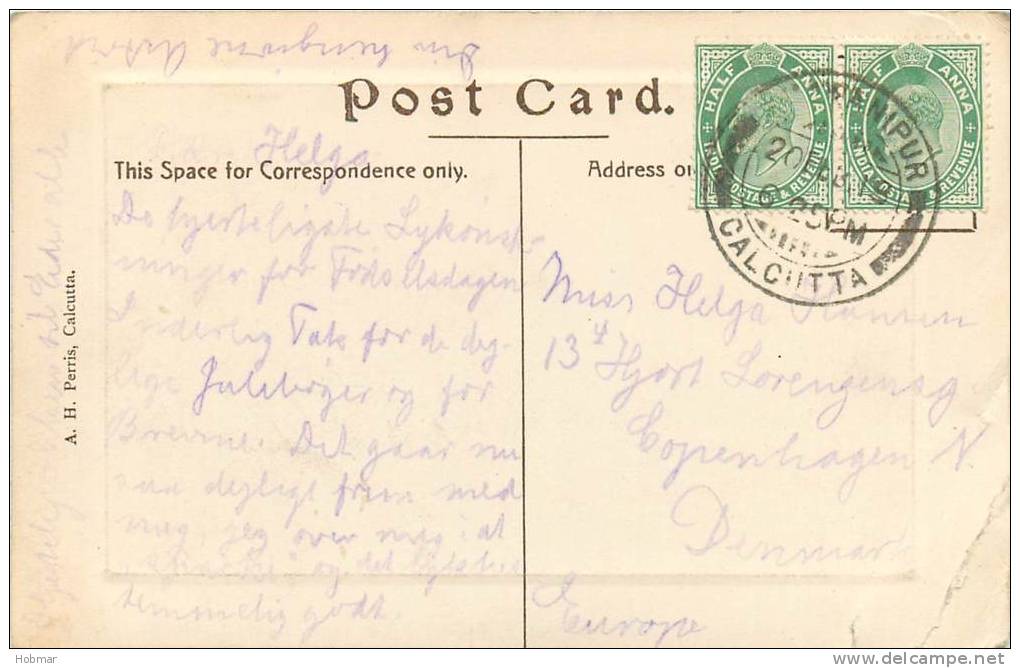 Post Card.
This Space for Correspondence only.
Address on
HALF ANNA
INDIA POSTAGE & REVENUE
HALF ANNA
INDIA POSTAGE & REVENUE
20
25 PM
CALCUTTA
A. H. Perris, Calcutta.
Helga
De hjerteligste Lykønsk-
ninger for Fødselsdagen
Inderlig Tak for de dej-
lige Julebøger og for
Brevene. Det gaar nu
saa dejligt frem med
mig, jeg øver mig i at
og det
temmelig godt.
Miss Helga Hansen
13 4 Hjort Lorenzensg.
Copenhagen N.
Denmark
Europe
Hobmar
delcampe.net